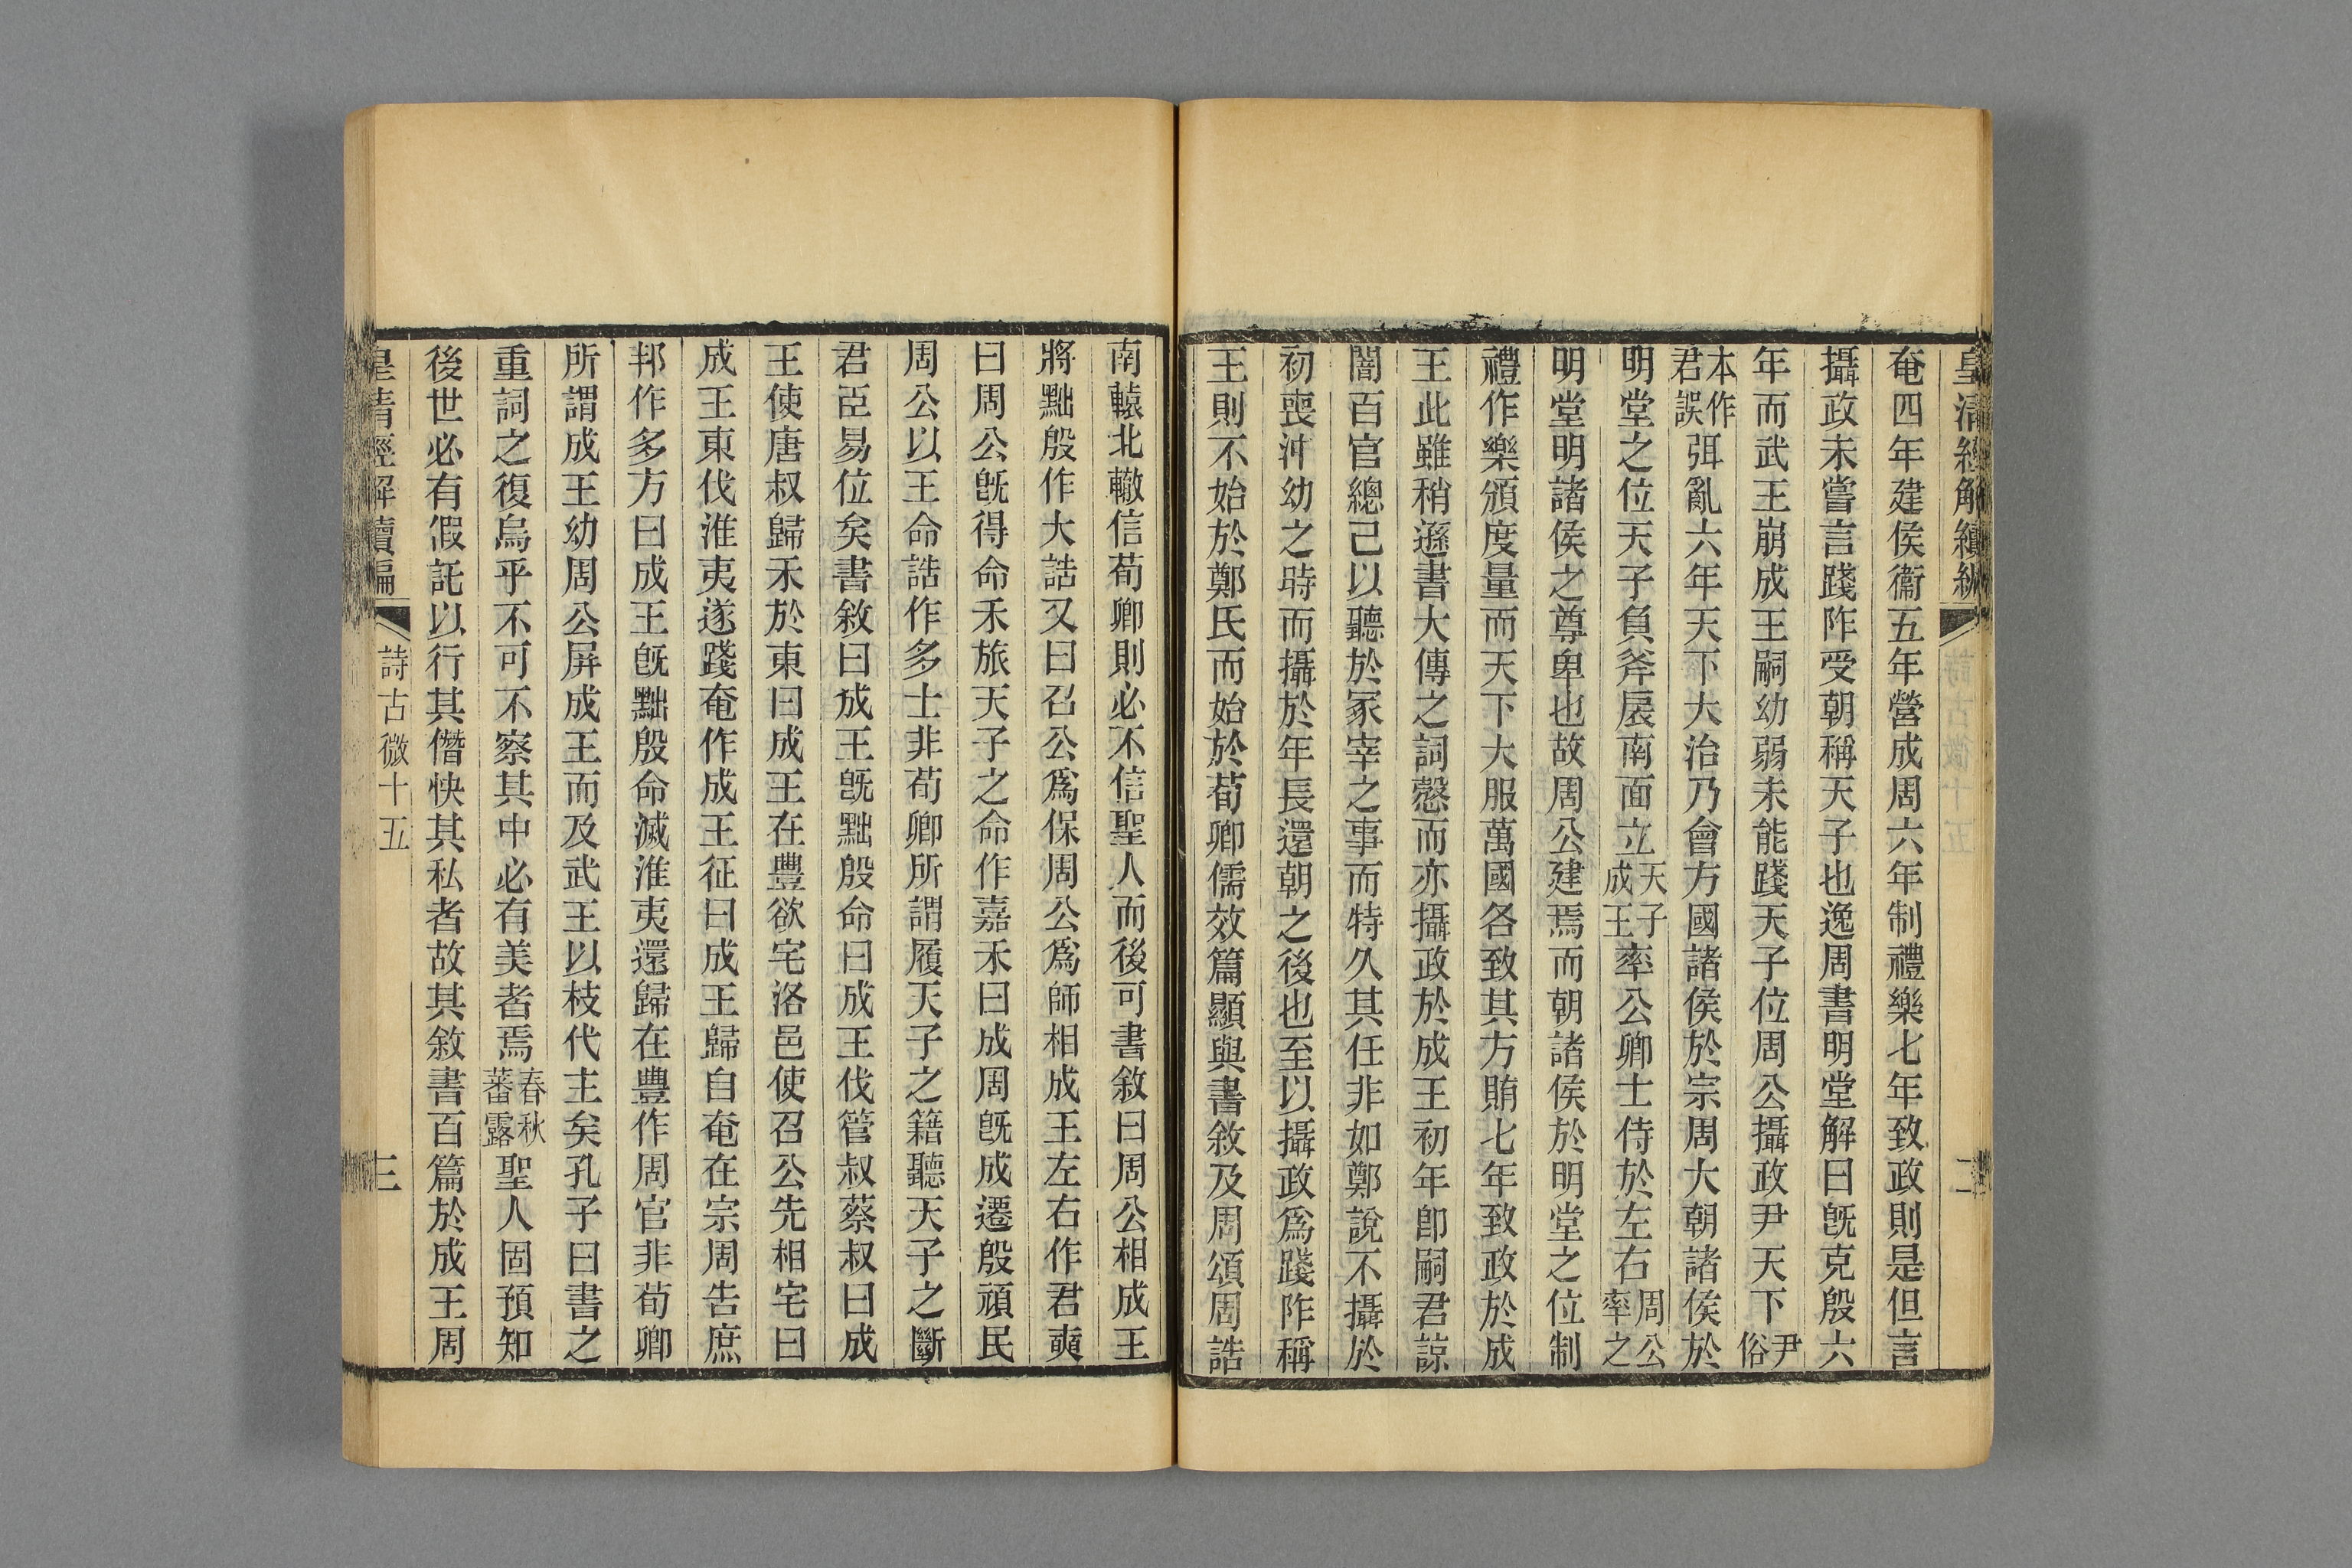 皇清經解續編
二
奄四年建侯衞五年營成周六年制禮樂七年致政則是但言
攝政未嘗言踐阼受朝稱天子也逸周書明堂解曰旣克殷六
年而武王崩成王嗣幼弱未能踐天子位周公攝政尹天下尹俗
本作君誤弭亂六年天下大治乃會方國諸侯於宗周大朝諸侯於
明堂之位天子負斧扆南面立天子成王率公卿士侍於左右周公率之
明堂明諸侯之尊卑也故周公建焉而朝諸侯於明堂之位制
禮作樂頒度量而天下大服萬國各致其方賄七年致政於成
王此雖稍遜書大傳之詞愨而亦攝政於成王初年卽嗣君諒
闇百官總己以聽於冢宰之事而特久其任非如鄭說不攝於
初喪沖幼之時而攝於年長還朝之後也至以攝政爲踐阼稱
王則不始於鄭氏而始於荀卿儒效篇顯與書敘及周頌周誥
南轅北轍信荀卿則必不信聖人而後可書敘曰周公相成王
將黜殷作大誥又曰召公爲保周公爲師相成王左右作君奭
曰周公旣得命禾旅天子之命作嘉禾曰成周旣成遷殷頑民
周公以王命誥作多士非荀卿所謂履天子之籍聽天子之斷
君臣易位矣書敘曰成王旣黜殷命曰成王伐管叔蔡叔曰成
王使唐叔歸禾於東曰成王在豐欲宅洛邑使召公先相宅曰
成王東伐淮夷遂踐奄作成王征曰成王歸自奄在宗周告庶
邦作多方曰成王旣黜殷命滅淮夷還歸在豐作周官非荀卿
所謂成王幼周公屏成王而及武王以枝代主矣孔子曰書之
重詞之復烏乎不可不察其中必有美者焉春秋蕃露聖人固預知
後世必有假託以行其僭快其私者故其敘書百篇於成王周
皇清經解續編
詩古微十五
三